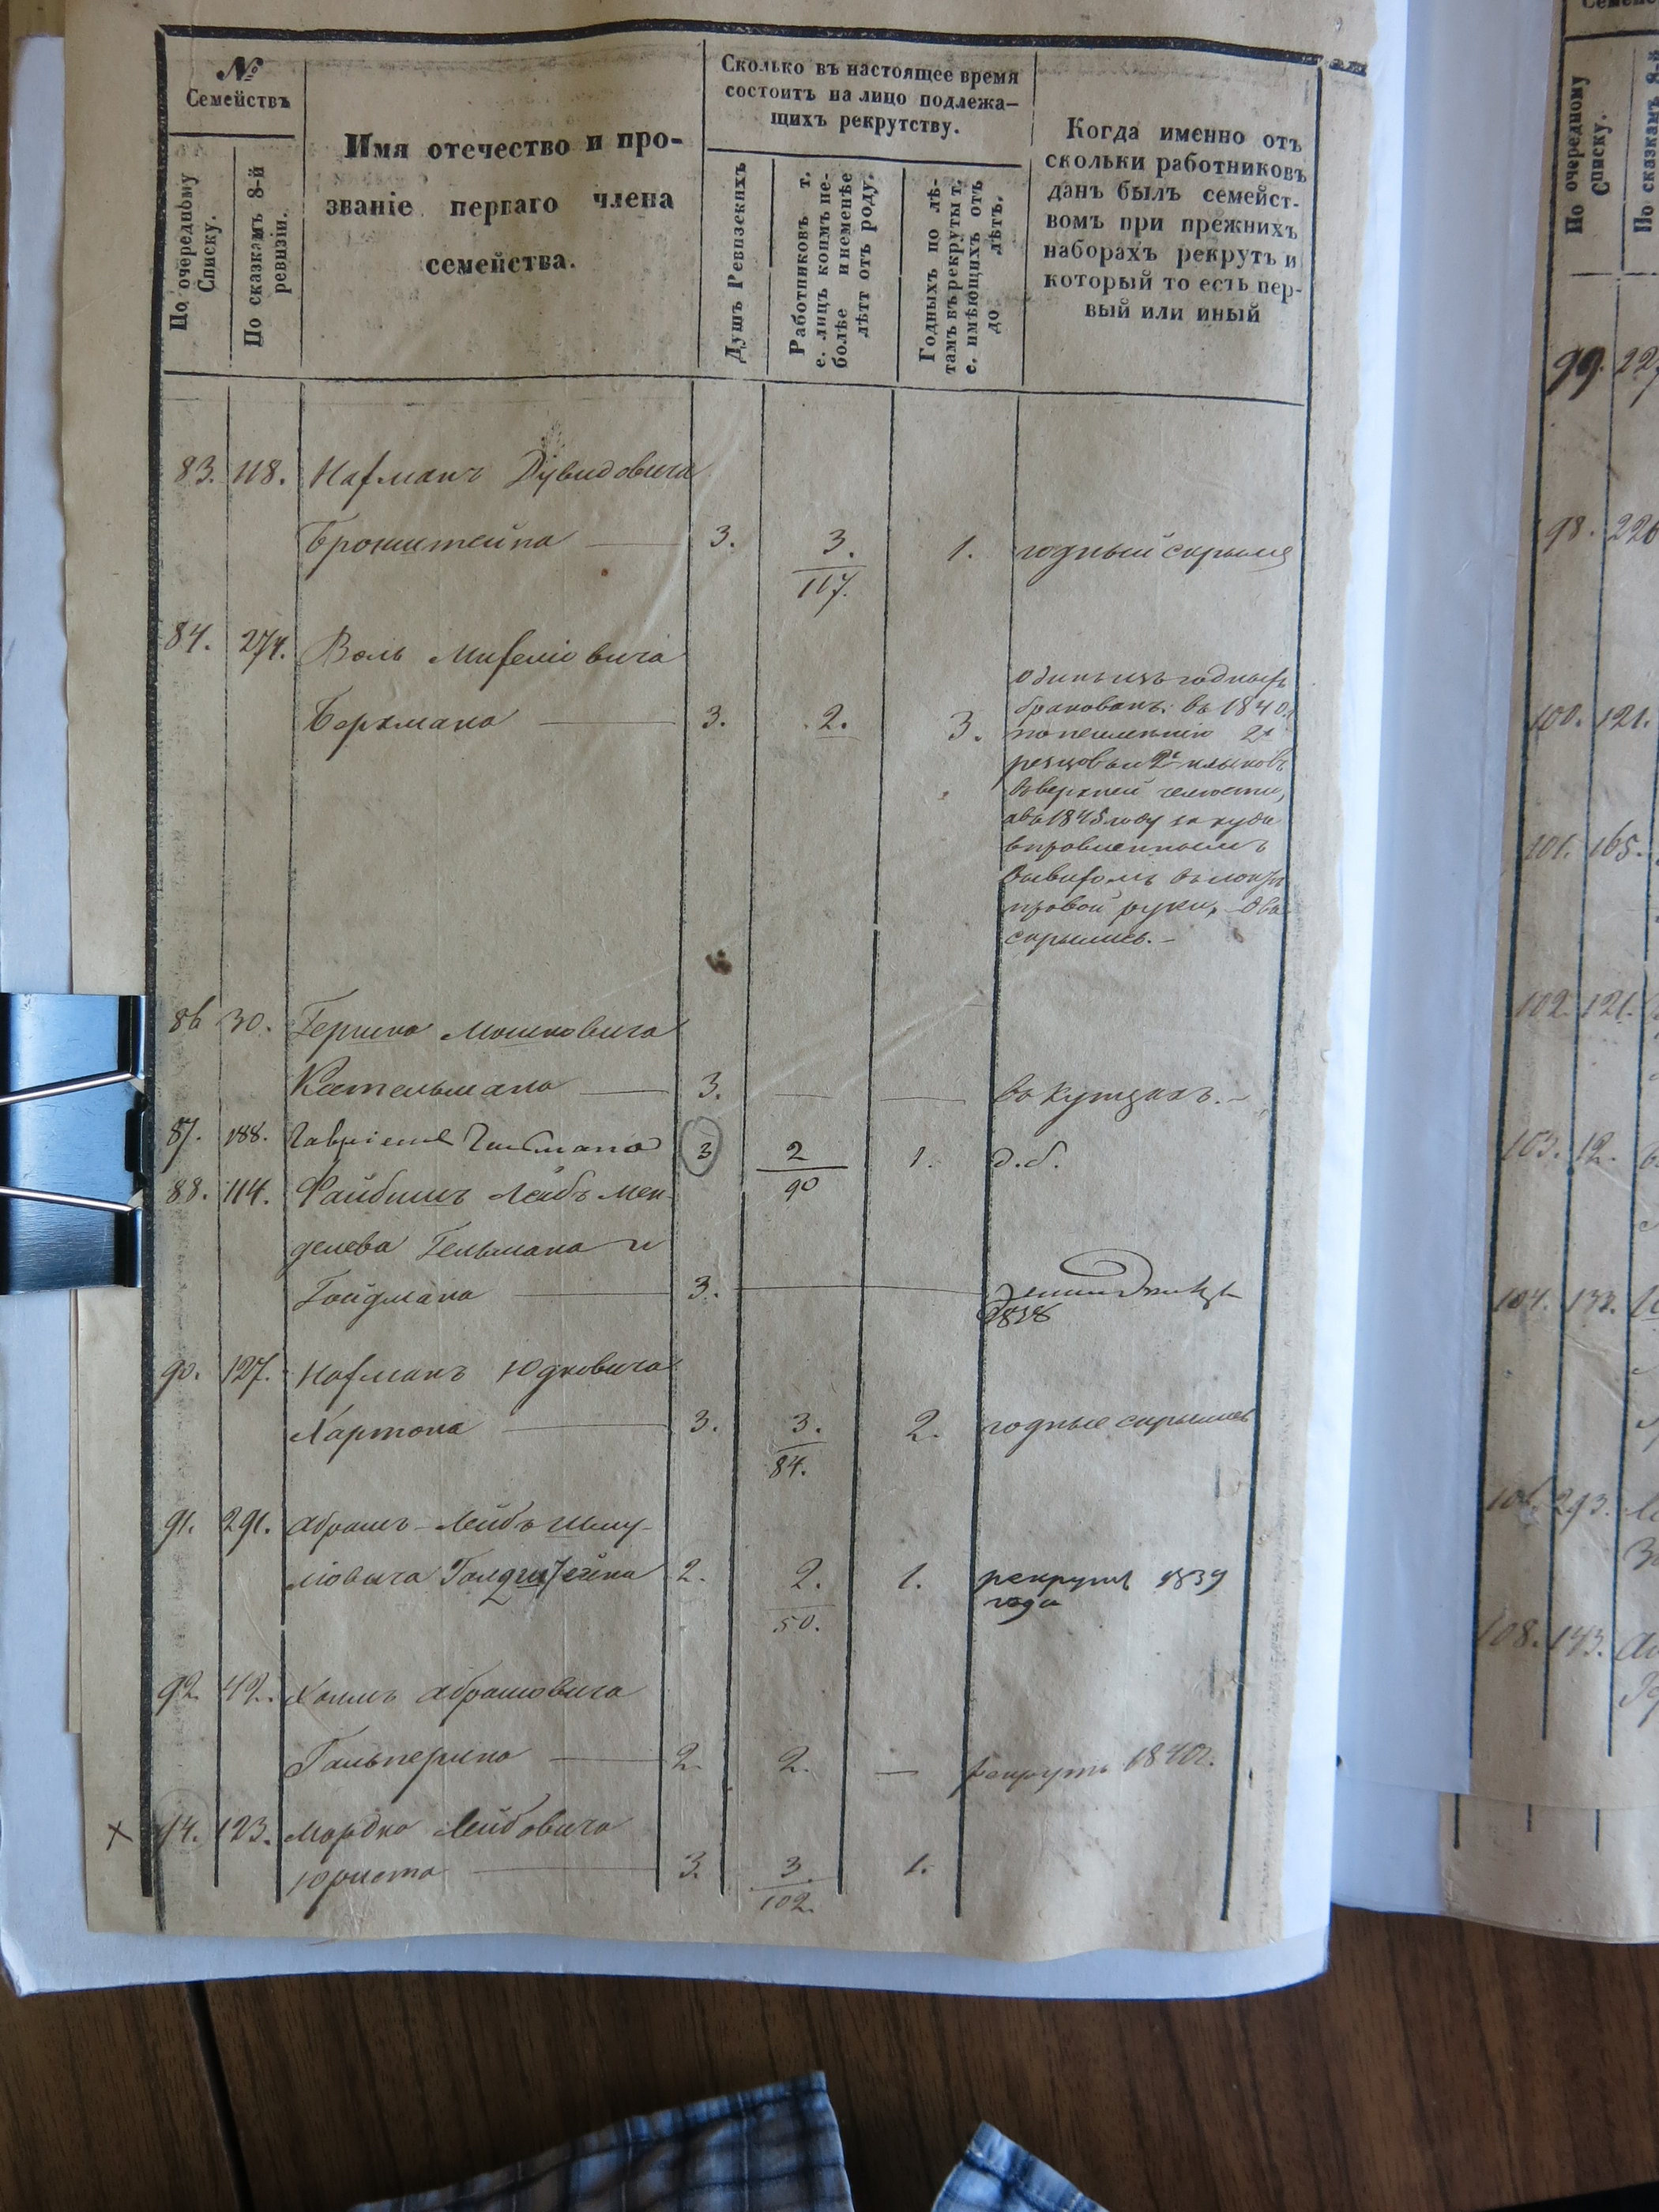 №
Семействъ
По очередному
Списку.
По сказкамъ 8-й
ревизіи.
Имя отечество и про-
званіе перваго члена
семейства.
Сколько въ настоящее время
состоитъ на лицо подлежа-
щихъ рекрутству.
Душъ Ревизскихъ
Работниковъ т.
е. лицъ коимъ не-
болѣе и неменѣе
лѣтъ отъ роду.
Годныхъ по лѣ-
тамъ въ рекруты т.
е. имѣющихъ отъ
до лѣтъ.
Когда именно отъ
скольки работниковъ
данъ былъ семейст-
вомъ при прежнихъ
наборахъ рекрутъ и
который то есть пер-
вый или иный
83. 118. Нахманъ Дувидовича
Бронштейна 3. 3. 1. годный скрылся
117.
84. 274. Воль Михеліовича
одинъ изъ годныхъ
бракованъ въ 1840
Беркмана 3. 2. 3. по неименію 2х
резцовъ и 2х клыковъ
въ верхней челюсти,
а въ 1845 году за худо
вправленнымъ
вывихомъ въ локтѣ
правой руки, два
скрылись.
86 30. Гершка Мошковича
Кательмана 3. — — въ купцахъ.
87. 188. Гавріеля 3 2 1. д.б.
90
88. 114. Файбишъ Лейбъ Мен-
делева Гельмана и
Гойдмана 3.
1838
90. 127. Нахманъ Юдковича
Хартона 3. 3. 2. годные скрылись
84.
91. 291. Абрамъ-Лейбъ Шму-
ліовича Голдштейна 2. 2. 1. рекрутъ 1839
года
50.
92. 42. Хаимъ Абрамовича
Гальперина 2. 2. — рекрутъ 1840 г.
х 94. 123. Мордко Лейбовича
Юриста 3. 3. 1.
102.
По очередному
Списку.
По сказкамъ 8-й
99. 227
98. 226
100. 121.
101. 165.
102. 121.
103. 12.
104. 132.
106. 293.
108. 143.